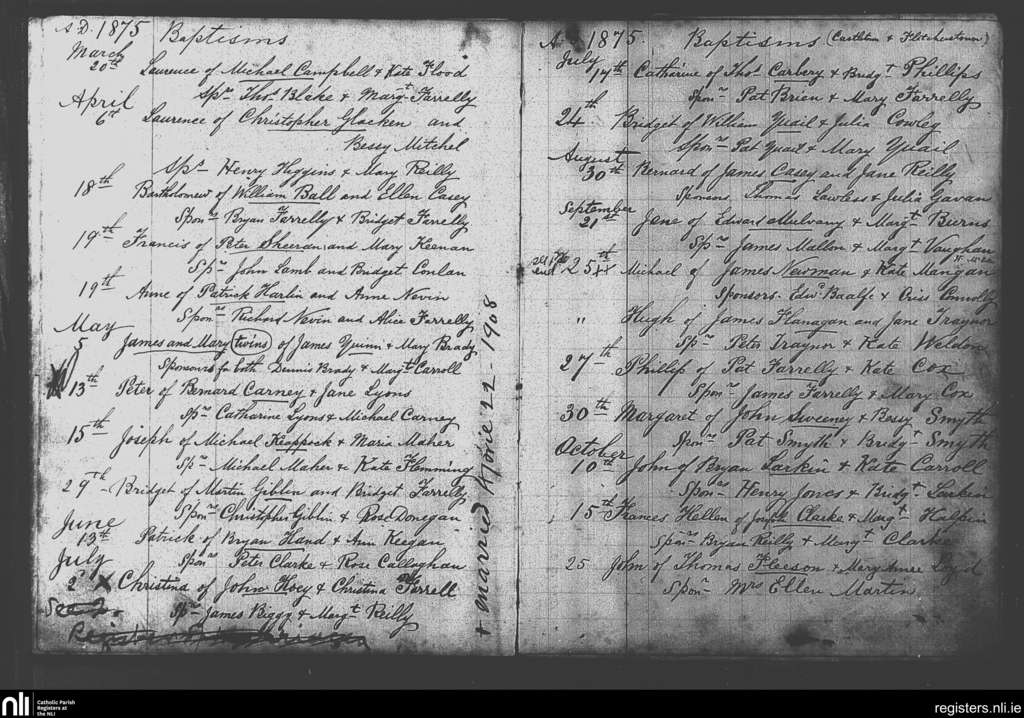 A.D. 1875 Baptisms
March
20th Laurence of Michael Campbell & Kate Flood
Spr Thos Blake & Margt Farrelly
April
6th Laurence of Christopher Glacken and
Bessy Mitchel
Sps Henry Higgins & Mary Reilly
18th Bartholomew of William Ball and Ellen Casey
Sponrs Bryan Farrelly & Bridget Farrelly
19th Francis of Peter Sheeran and Mary Keenan
Spn John Lamb and Bridget Conlan
19th Anne of Patrick Harlin and Anne Nevin
Spons Richard Nevin and Alice Farrelly
May
5 James and Mary twins of James Quinn & Mary Brady
Sponsors for both Dennis Brady & Margt Carroll
13th Peter of Bernard Carney & Jane Lyons
Spn Catharine Lyons & Michael Carney
15th Joseph of Michael Keappock & Maria Maher
Spn Michael Maher & Kate Flemming
29th Bridget of Martin Giblin and Bridget Farrelly
Sponrs Christopher Giblin & Rose Donegan
June
13th Patrick of Bryan Hand & Ann Keegan
July Spons Peter Clarke & Rose Callaghan
2d X Christina of John Hoey & Christina Farrell
Spn James Biggy & Margt Reilly
+ married June 22 - 1908
A.D. 1875. Baptisms (Castletown & Fletcherstown)
July
17th Catharine of Thos Carbery & Bridgt Phillips
Sponrs Pat Brien & Mary Farrelly
24th Bridget of William Quail & Julia Cowley
Sponrs Pat Quail & Mary Quail
August
30th Bernard of James Casey and Jane Reilly
Sponsors Thomas Lawless & Julia Gavan
September
21st Jane of Edward Mulvany & Margt Burns
Spn James Mallon & Margt Vaughan
25th Michael of James Newman & Kate Mangan
Sponsors Edwd Baalfe & Criss Connolly
" Hugh of James Flanagan and Jane Traynor
Spn Peter Traynor & Kate Weldon
27th Phillip of Pat Farrelly & Kate Cox
Sponr James Farrelly & Mary Cox
30th Margaret of John Sweeney & Bessy Smyth
October Sponrs Pat Smyth & Bridgt Smyth
10th John of Bryan Larkin & Kate Carroll
Spons Henry Jones & Bridgt Larkin
15th Frances Hellen of Joseph Clarke & Margt Halpin
Sponrs Bryan Reilly & Margt Clarke
25 John of Thomas Fleeson & Mary Anne
Sponr Mrs Ellen Martin
nli
Catholic Parish
Registers at
the NLI
registers.nli.ie